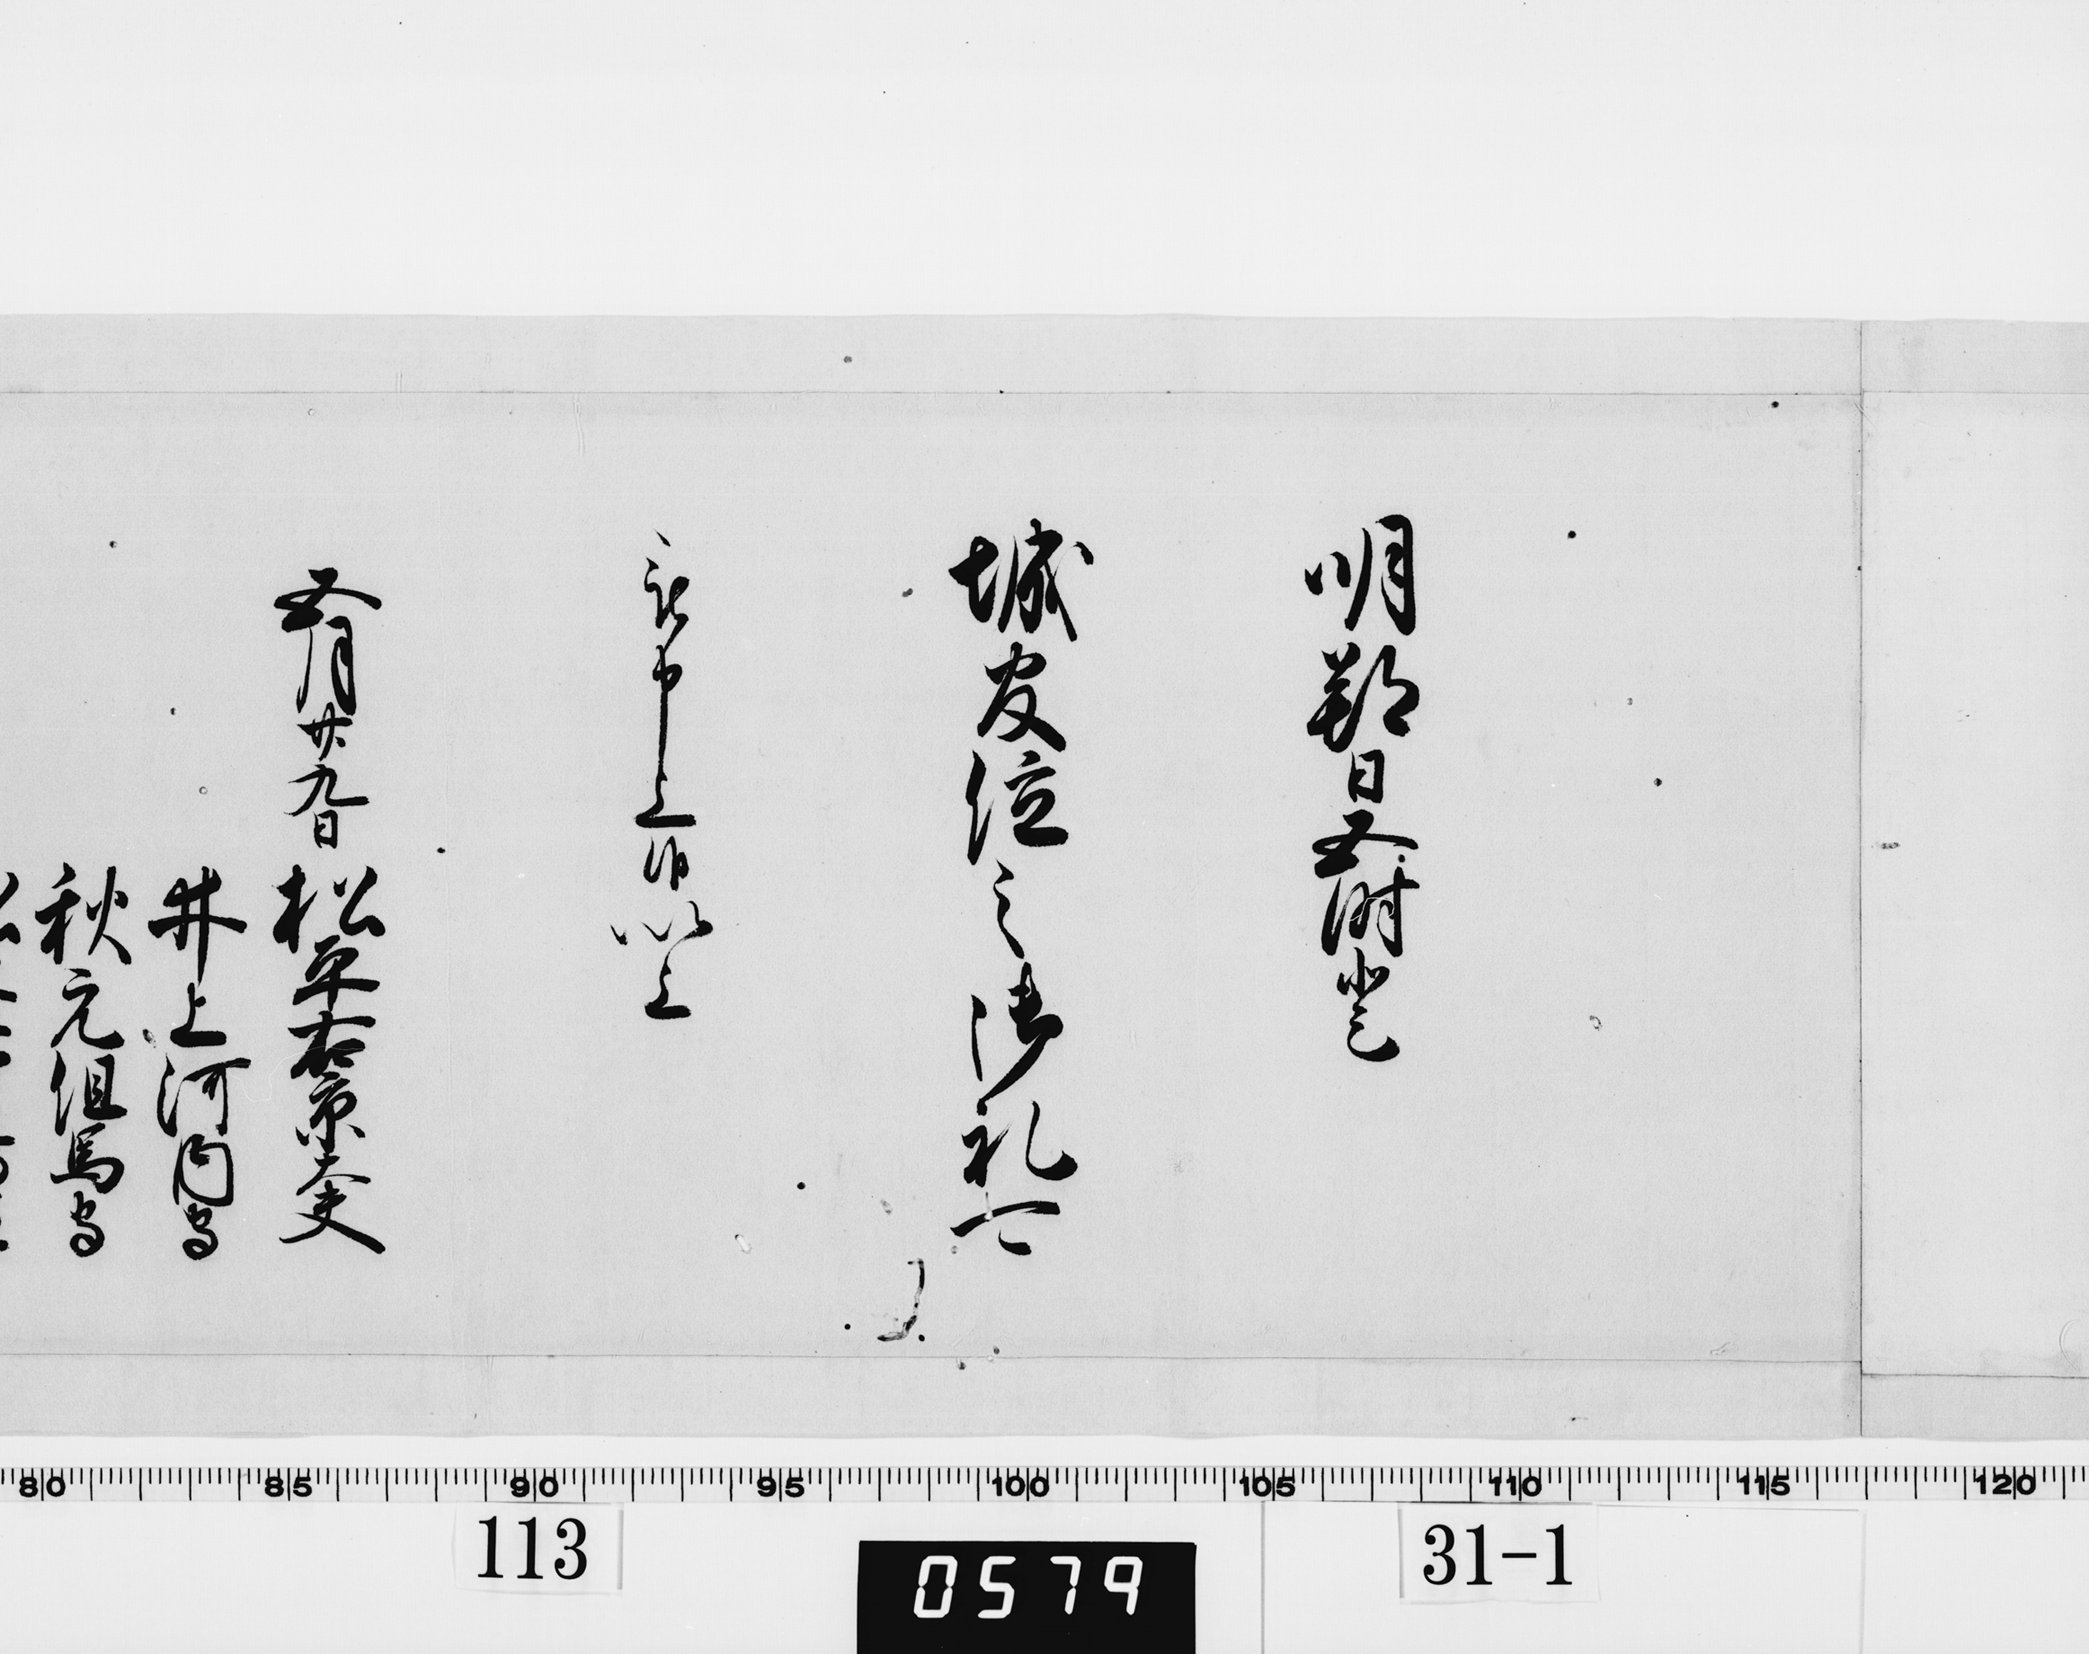 明朔日五時登
城官位之御礼可
被申上候以上
五月廿九日
松平右京大夫
井上河内守
秋元但馬守
80 85 90 95 100 105 110 115 120
113
0579
31-1